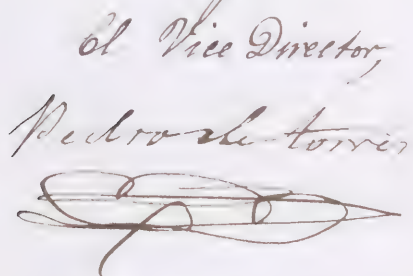 El Vice Director,
Pedro de Torres